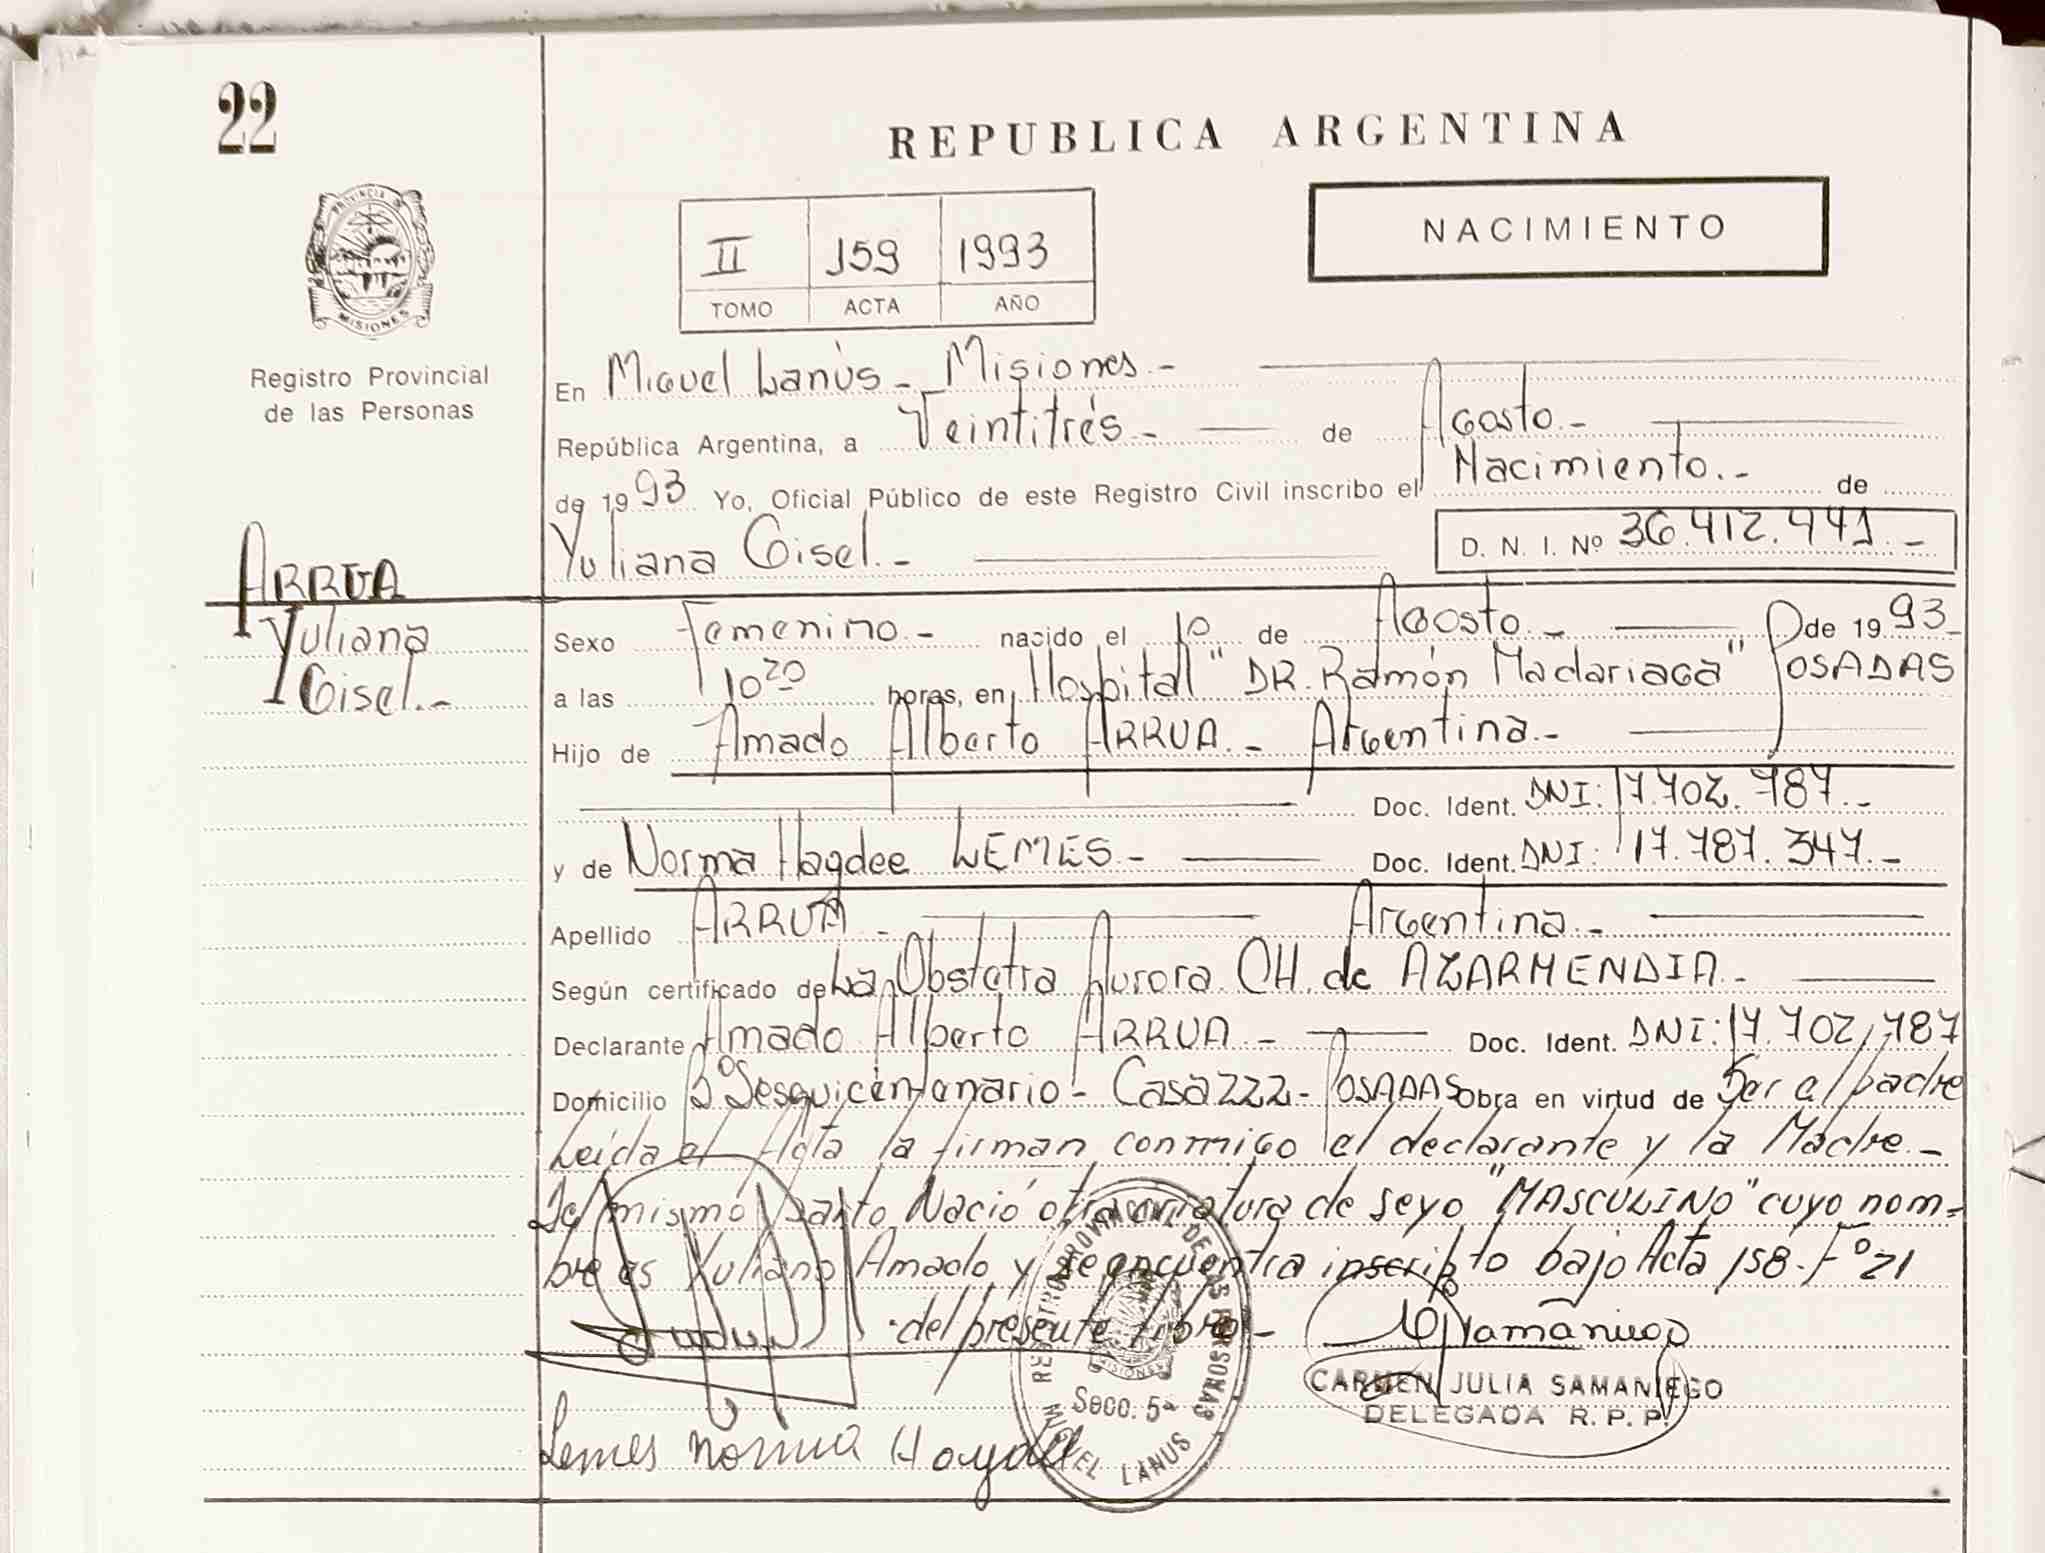 22
REPUBLICA ARGENTINA
NACIMIENTO
II 159 1993
TOMO ACTA AÑO
PROVINCIA DE
MISIONES
Registro Provincial
de las Personas
En Miguel Lanús - Misiones -
República Argentina, a Veintitrés - de Agosto -
de 1993 Yo, Oficial Público de este Registro Civil inscribo el Nacimiento.- de
Yuliana Gisel.- D. N. I. Nº 36.412.441.-
ARRUA
Yuliana
Gisel.-
Sexo Femenino.- nacido el 10 de Agosto.- de 1993
a las 10 20 horas, en Hospital "DR. Ramón Madariaga" POSADAS
Hijo de Amado Alberto ARRUA.- Argentina.-
Doc. Ident. DNI: 17.702.787.-
y de Norma Haydee LEMES.- Doc. Ident. DNI: 17.787.347.-
Apellido ARRUA - Argentina.-
Según certificado de La Obstetra Aurora CH. de AZARMENDIA.-
Declarante Amado Alberto ARRUA.- Doc. Ident. DNI: 17.702.787
Domicilio Bº Sesquicentenario - Casa 222 - POSADAS Obra en virtud de Ser el padre
Leída el Acta la firman conmigo el declarante y la Madre.-
Del mismo parto Nació otra criatura de sexo "MASCULINO" cuyo nom-
bre es Yuliano Amado y se encuentra inscripto bajo Acta 158-Fº21
del presente libro-
Samaniego
CARMEN JULIA SAMANIEGO
DELEGADA R. P. P.
REGISTRO PROVINCIAL DE LAS PERSONAS
MISIONES
Secc. 5ª
MIGUEL LANUS
Lemes Norma Haydee